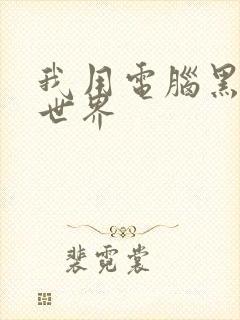 我用電腦黑
世界
裴霓裳